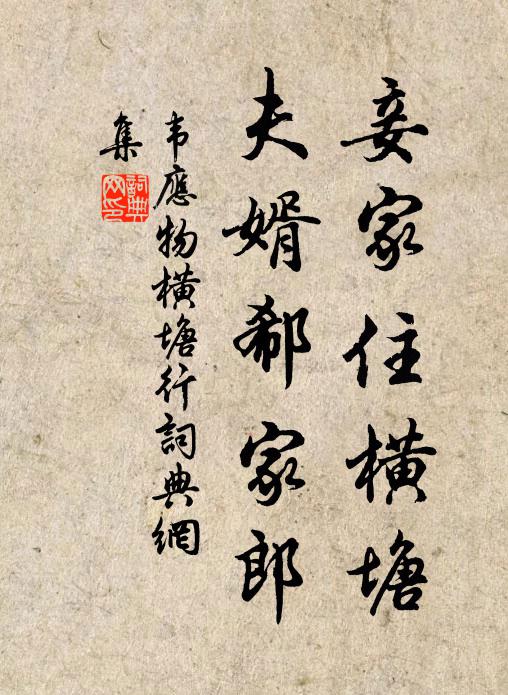 妾家住橫塘
夫婿郗家郎
韦應物橫塘行詞典網
集
詞典
网印